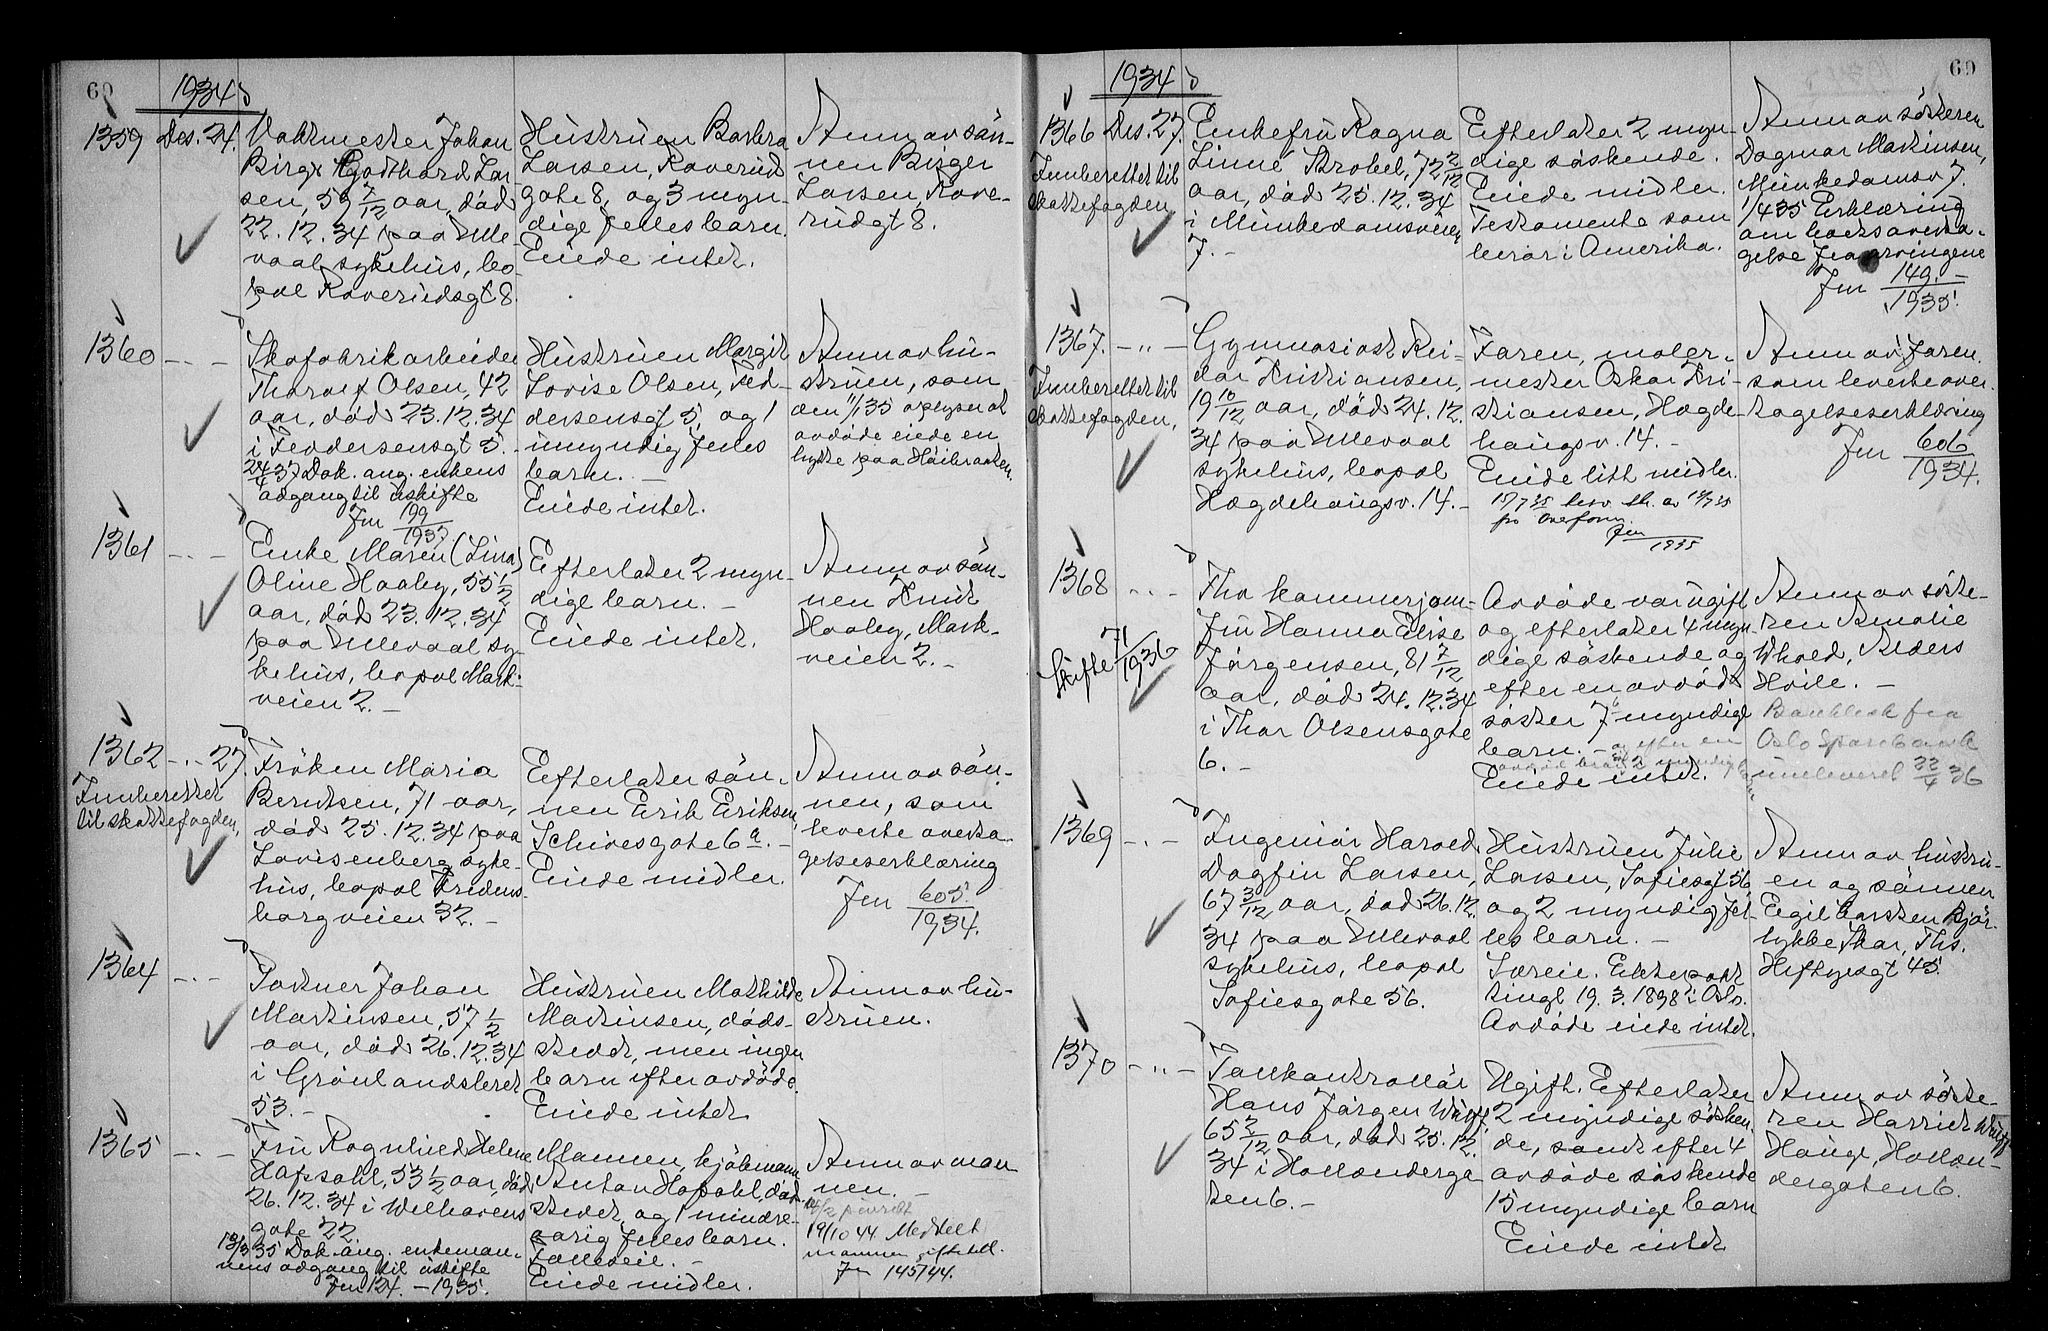 60
1934
1359 Des. 24. Vaktmester Johan
Birger Godthard Lar
sen, 59 7/12 aar, död
22.12.34 paa Ulle
vaal sykehus, bo-
pæl Roverudsgt 8.
Hustruen Barbra
Larsen, Roverud
gate 8, og 3 myn-
dige felles barn.
Eiede intet.
Anm av søn-
nen Birger
Larsen, Rove-
rudgt 8.
1360 - - -
Skofabrikarbeider
Thorolf Olsen, 42
aar, död 23.12.34
i Feddersensgt 5.
24/4 37 Dok. ang. enkens
adgang til uskifte
Jnr 199/1937
Hustruen Margit
Lovise Olsen, Fed-
dersensgt 5, og 1
umyndig felles
barn. -
Eiede intet.
Anm av hu-
struen, som
den 11/1 35 oplyser at
avdøde eiede en
hytte paa Høibraaten.
1361 - - -
Enke Maren (Lina)
Oline Haaby, 55 1/2
aar, död 23.12.34
paa Ullevaal sy-
kehus, bopæl Mark-
veien 2. -
Efterlater 2 myn-
dige barn. -
Eiede intet.
Anm av søn-
nen Knut
Haaby, Mark-
veien 2. -
1362 - " - 27.
Innberettet
til skattefogden,
Frøken Maria
Berntsen, 71 aar,
död 25.12.34 paa
Lovisenberg syke-
hus, bopæl Fredens-
borgveien 32. -
Efterlater søn-
nen Erik Eriksen,
Schivesgate 6 a. -
Eiede midler.
Anm av søn-
nen, som
leverte overta-
gelseserklæring
Jnr 605/1934.
1364 - " -
Portner Johan
Martinsen, 57 1/2
aar, död 26.12.34
i Grønlandsleret
53. -
Hustruen Mathilde
Martinsen, døds-
stedet, men ingen
barn efter avdøde.
Eiede intet
Anm av hu-
struen.
1365 - " -
Fru Ragnhild Helene
Hafsahl, 53 1/2 aar, død
26.12.34 i Welhavens
gate 22
13/3 35 Dok ang. enkeman-
nens adgang til uskifte
Jnr 124. - 1935.
Mannen, kjøbmann
Anton Hafsahl, død-
stedet, og 1 mindre-
aarig felles barn.
Felleseie. -
Eiede midler.
Anm av man
nen. -
19/10 44 Meddelt
mannen
Jnr 145/44.
1934
69
1366 Des. 27.
Innberettet til
skattefogden
Enkefru Ragna
Linné Strobel, 72 2/12
aar, död 25.12.34
i Munkedamsveien
7. -
Efterlater 2 myn-
dige søskende.
Eiede midler.
Testamente som
beror i Amerika.
Anm av søsteren
Dagmar Martinsen,
Munkedamsv 7.
1/4 35 Erklæring
om boets overta-
gelse fra arvingene
Jnr 149. - /1935.
1367. - " -
Innberettet til
skattefogden,
Gymnasiast Rei-
dar Kristiansen,
19 10/12 aar, död 24.12.
34 paa Ullevaal
sykehus, bopæl
Hægdehaugsv. 14. -
Faren, maler-
mester Oskar Kri-
stiansen, Hægde-
haugsv. 14. -
Eiede litt midler.
Anm av faren
som leverte over-
tagelseserklæring
Jnr 606/1934.
1368 - " -
Skifte 71/1936
Fhv kammerjom-
fru Hanna Elise
Jørgensen, 81 7/12
aar, död 24.12.34
i Thor Olsensgate
6. -
Avdøde var ugift
og efterlater 4 myn-
dige søskende og
efter en avdød
søster 7 myndige
barn. - og efter en
Eiede intet.
Anm av søste-
ren Amalie
Whold, Reders
Hvile. -
Bankbok fra
Oslo Sparebank
innlevert 22/4 36
1369 - " -
Ingeniør Harald
Dagfin Larsen,
67 3/12 aar, död 26.12.
34 paa Ullevaal
sykehus, bopæl
Sofiesgate 56.
Hustruen Julie
Larsen, Sofiesgt 56,
og 2 myndig fel-
les barn. -
Særeie. Ektepakt
tingl 19.3.1898 i Oslo.
Avdøde eiede intet.
Anm av hustru-
en og sønnen
Egil Carsten Bjør-
lykke Skar, Ths.
Heftyesgt 45.
1370 - " -
Tollkontrollør
Hans Jørgen Wulff
65 2/12 aar, död 25.12.
34 i Hollenderga
ten 6. -
Ugift. Efterlater
2 myndige søsken
de, samt efter 4
avdøde søskende
15 myndige barn
Eiede intet
Anm av søste-
ren Harriet Wulff
Hauge, Hollen-
dergaten 6.